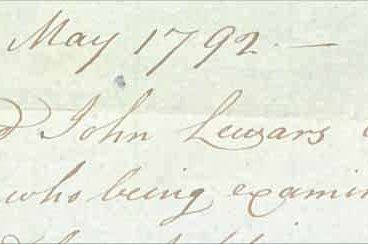 May 1792 —
John Lewars
who being